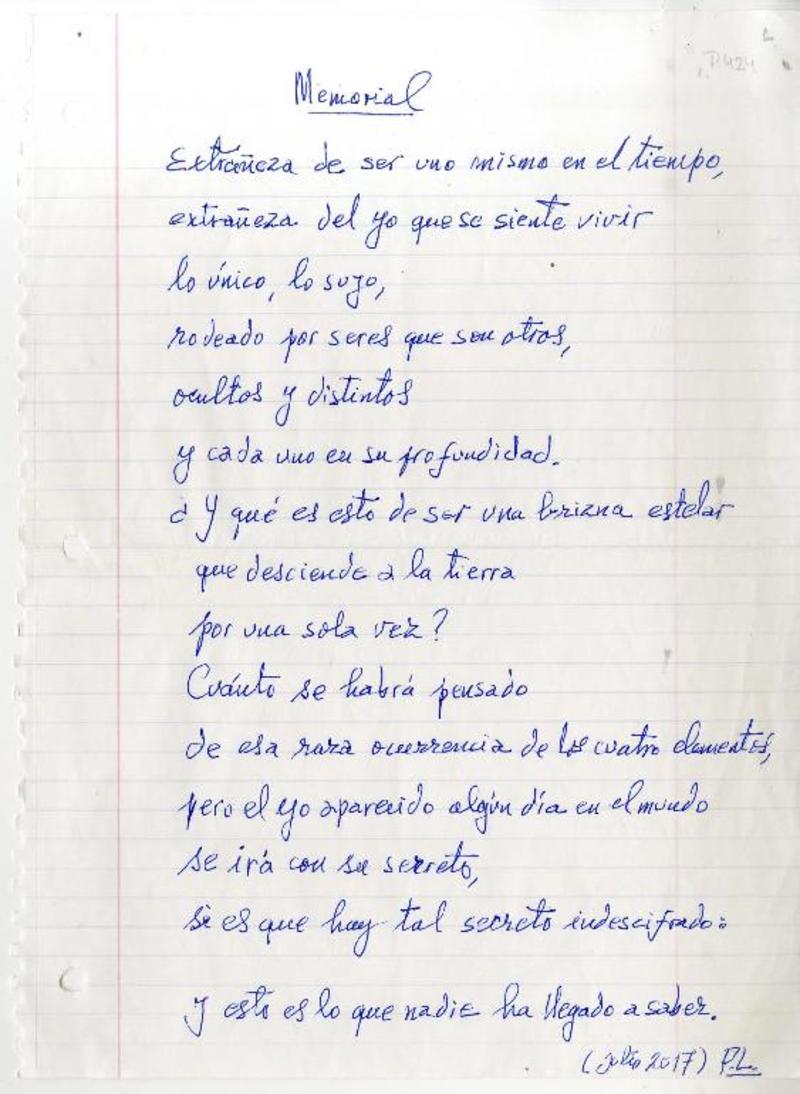 P424
Memorial
Extrañeza de ser uno mismo en el tiempo,
extrañeza del yo que se siente vivir
lo único, lo suyo,
rodeado por seres que son otros,
ocultos y distintos
y cada uno en su profundidad.
¿Y qué es esto de ser una brizna estelar
que desciende a la tierra
por una sola vez?
Cuánto se habrá pensado
de esa rara ocurrencia de los cuatro elementos,
pero el yo aparecido algún día en el mundo
se irá con su secreto,
si es que hay tal secreto indescifrado:
y esto es lo que nadie ha llegado a saber.
(julio 2017) P.L.